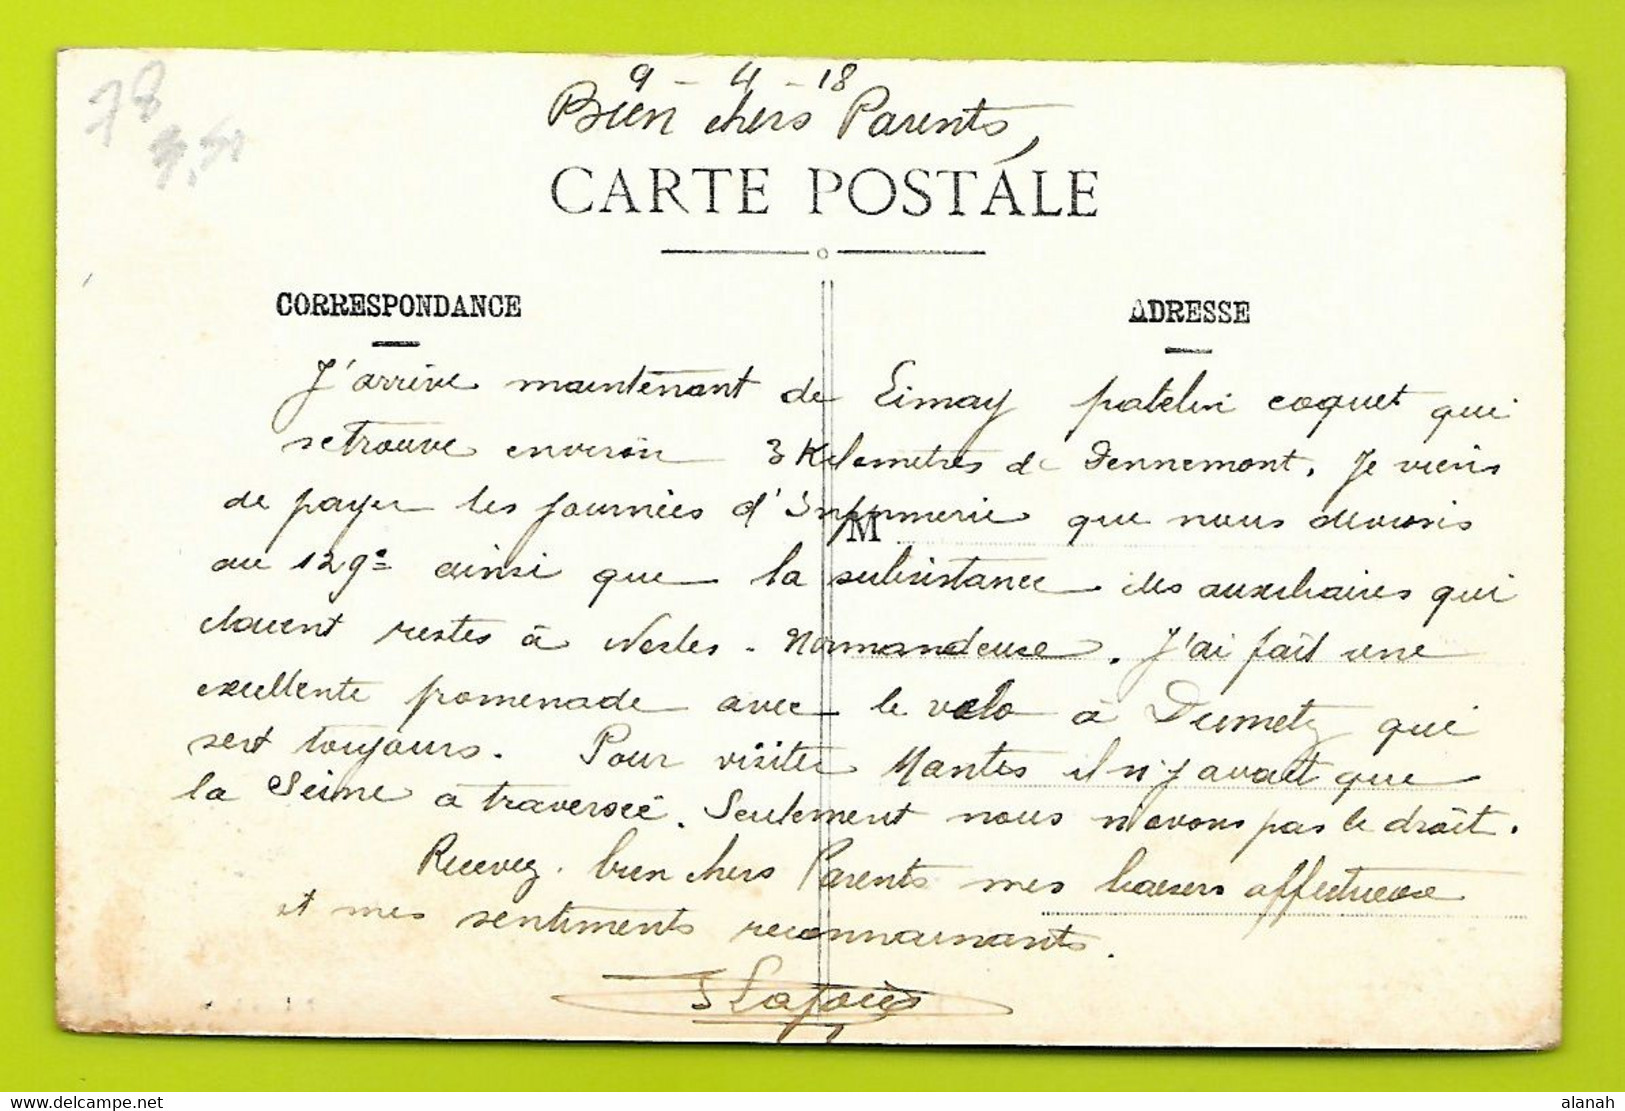 78
9 - 4 - 18
Bien chers Parents,
CARTE POSTALE
CORRESPONDANCE
ADRESSE
J'arrive maintenant de Limay patelin coquet qui
se trouve environ 3 Kilomètres de Dennemont. Je viens
de payer les journées d'Infirmerie que nous devions
M
au 129e ainsi que la subsistance des auxiliaires qui
étaient restés à Nesles - Normandeuse. J'ai fait une
excellente promenade avec le velo à Dumetz qui
sert toujours. Pour visiter Mantes il n'y avait que
la Seine à traversée. Seulement nous n'avons pas le droit.
Recevez bien chers Parents mes baisers affectueux
et mes sentiments reconnaissants.
delcampe.net
alanah